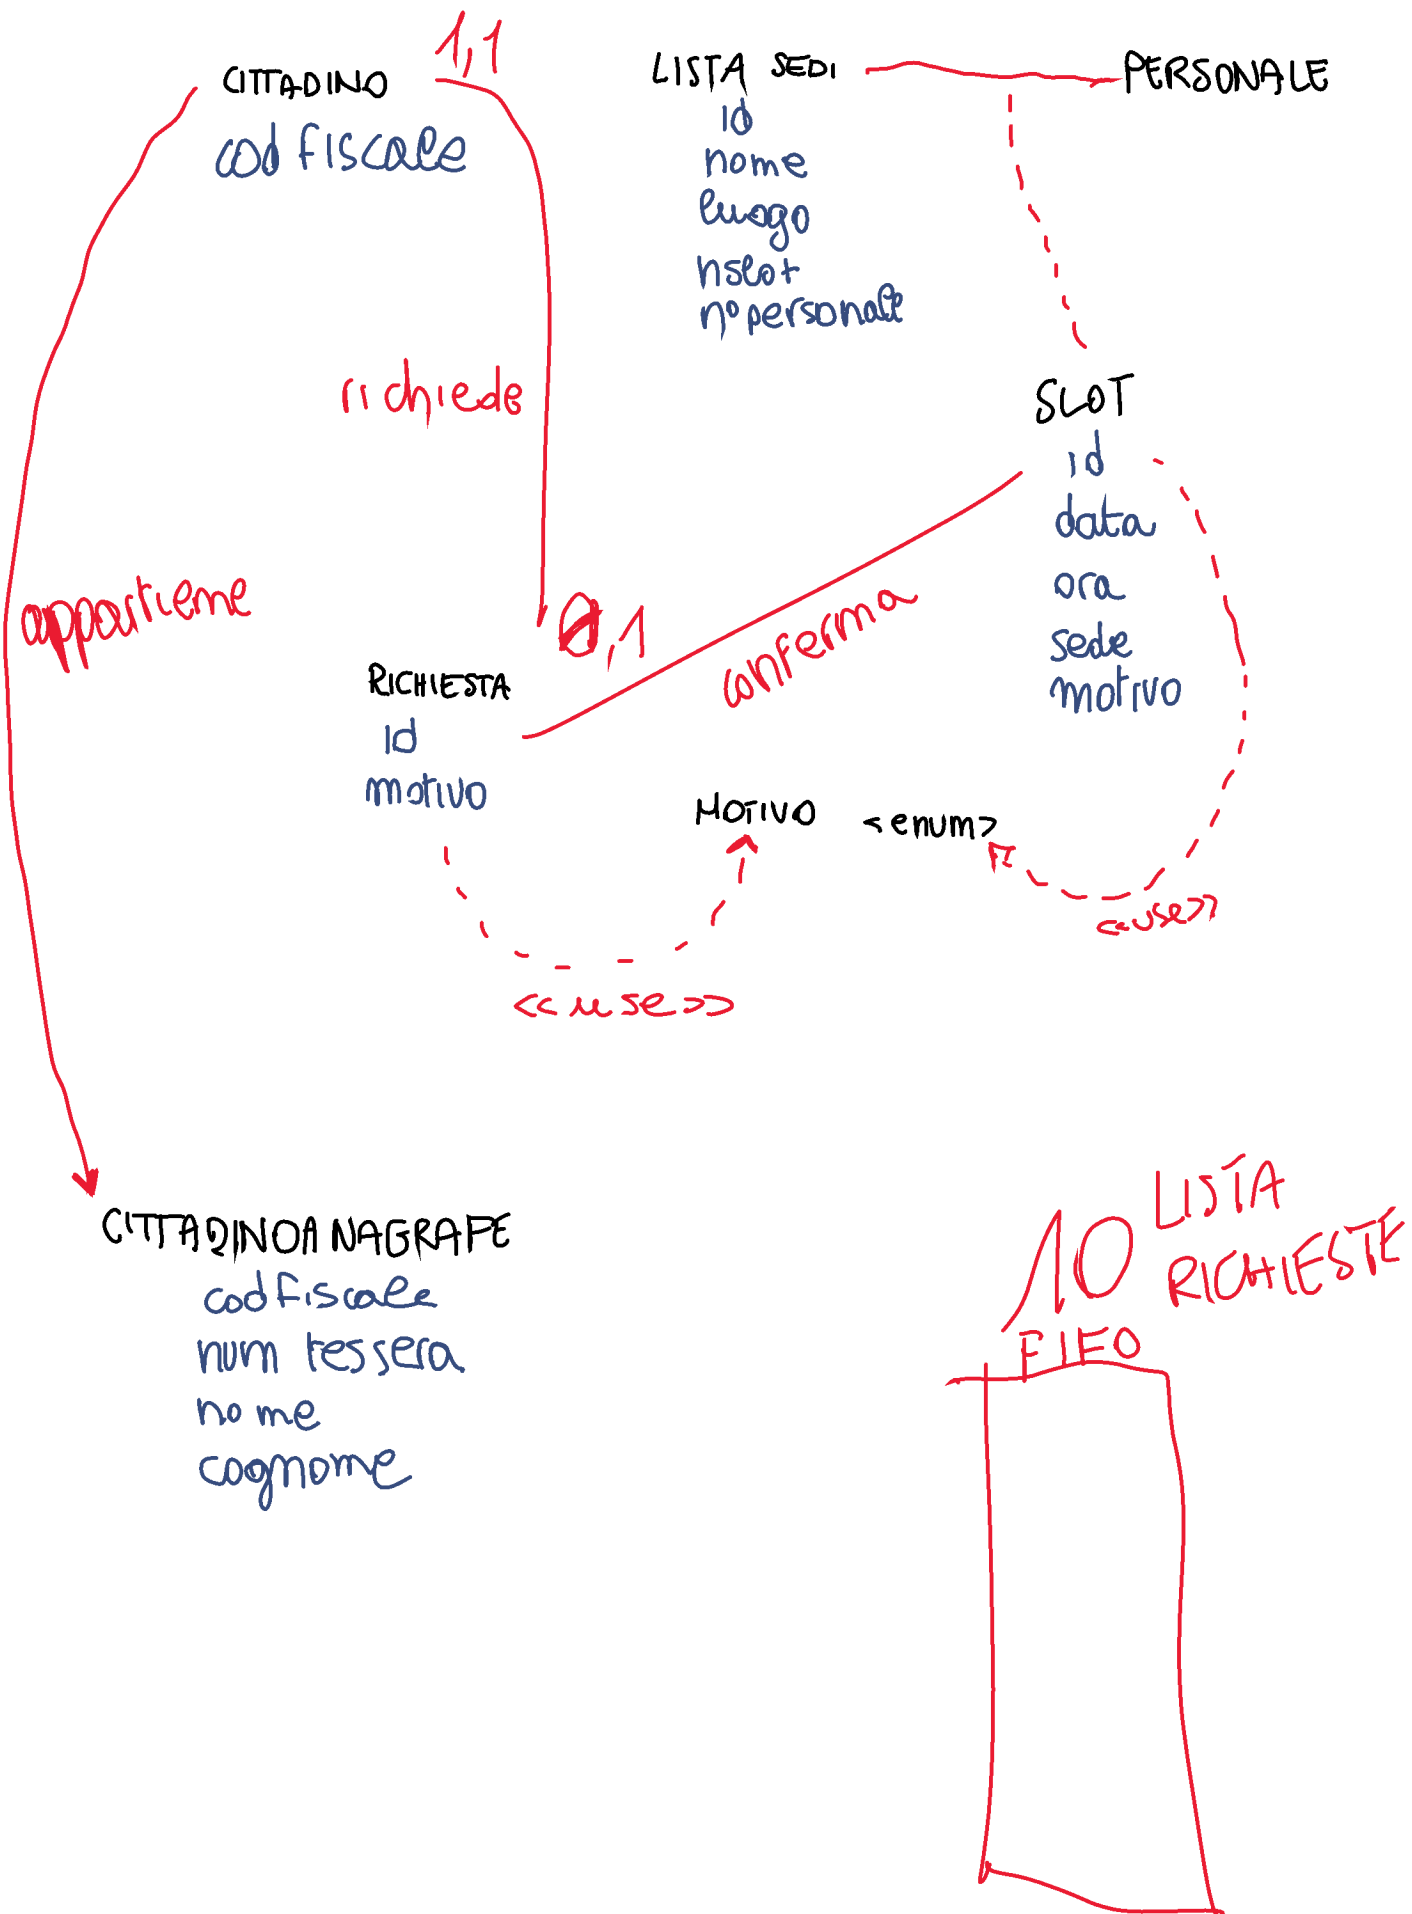 1,1
CITTADINO
cod fiscale
LISTA SEDI
id
nome
luogo
nslot
n° personale
PERSONALE
richiede
SLOT
id
data
ora
sede
motivo
appartiene
0,1
conferma
RICHIESTA
id
motivo
MOTIVO <enum>
<<use>>
<<use>>
CITTADINOANAGRAFE
cod fiscale
num tessera
nome
cognome
10 LISTA
RICHIESTE
FIFO